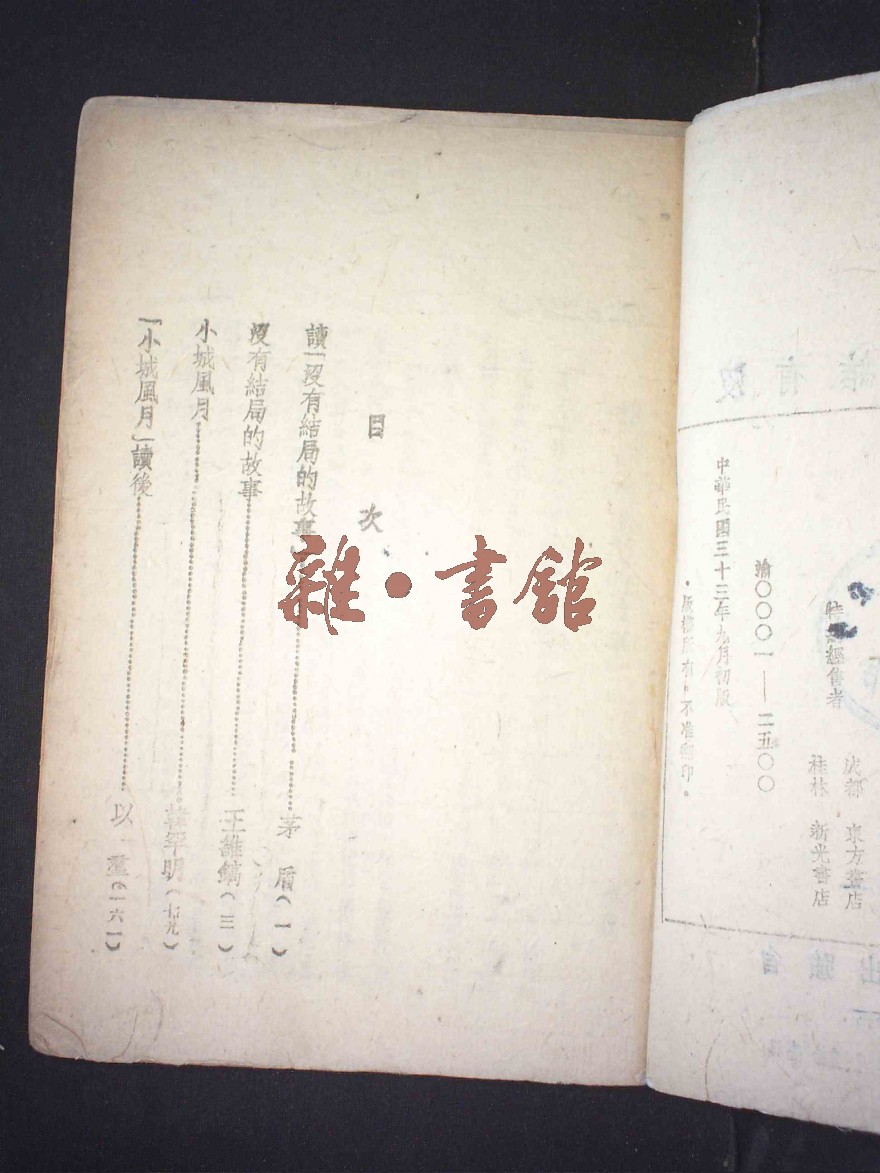 渝〇〇〇一——二五〇〇
中華民國三十三年九月初版
•版權所有•不准翻印•
經售者
成都 東方書店
桂林 新光書店
目次
讀「沒有結局的故事」……茅盾(一)
沒有結局的故事……王維鎬(三)
小城風月……韓罕明(七九)
「小城風月」讀後……以羣(一六一)
雜•書館